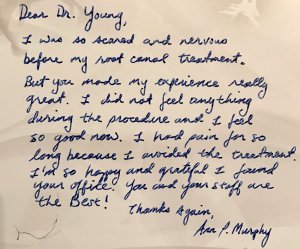 Dear Dr. Young,
I was so scared and nervous
before my root canal treatment.
But you made my experience really
great. I did not feel anything
during the procedure and I feel
so good now. I had pain for so
long because I avoided the treatment.
I'm so happy and grateful I found
your office. You and your staff are
the Best!
Thanks Again,
Ann P. Murphy